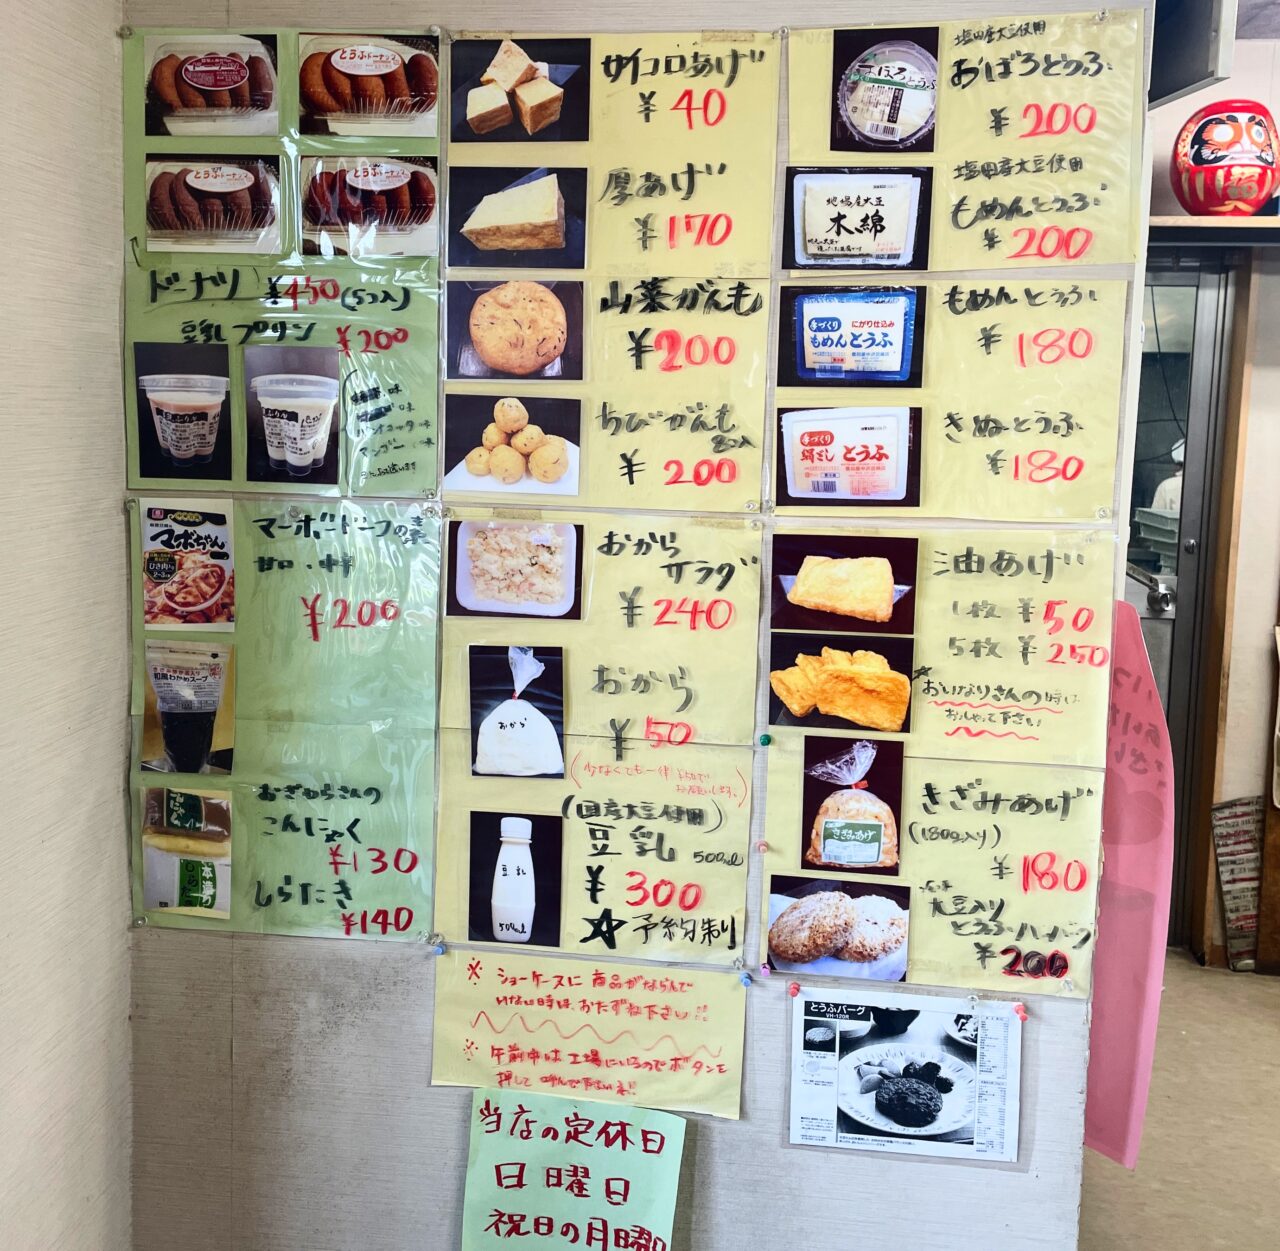 とうふドーナツ
とうふドーナツ
ドーナツ ¥450 (5コ入)
豆乳プリン ¥200
味
味
マンゴー味
マーボードーフの素
甘口・中辛
¥200
マボちゃん
ひき肉入り
和風わかめスープ
おぎわらさんの
こんにゃく
¥130
しらたき
¥140
サイコロあげ
¥40
厚あげ
¥170
山菜がんも
¥200
ちびがんも
8コ入
¥200
おから
サラダ
¥240
おから
おから
¥50
(少なくても一律 ¥50で
お願いします。)
(国産大豆使用)
豆乳 500ml
豆乳
500ml
¥300
☆予約制り
※ショーケースに商品がならんで
いない時は、おたずね下さい!!
※午前中は工場にいるのでボタンを
押して呼んで下さいネ!!
当店の定休日
日曜日
祝日の月曜日
塩田産大豆使用
おぼろどうふ
¥200
おぼろとうふ
塩田産大豆使用
もめんどうふ
¥200
地場産大豆
木綿
もめんとうふ
¥180
手づくり
にがり仕込み
もめんとうふ
きぬとうふ
¥180
手づくり
絹ごし とうふ
油あげ
1枚 ¥50
5枚 ¥250
おいなりさんの時は
おっしゃって下さい
きざみあげ
(180g入り)
¥180
きざみあげ
大豆入り
とうふハンバーグ
¥200
とうふバーグ
VH-120R